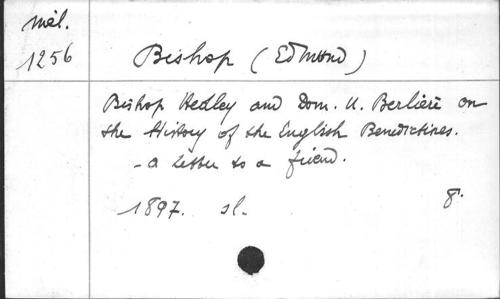 Mél.
1256
Bishop (Edmond)
Bishop Hedley and Dom. U. Berlière on
the History of the English Benedictines.
- a letter to a friend.
1897. sl. 8°.